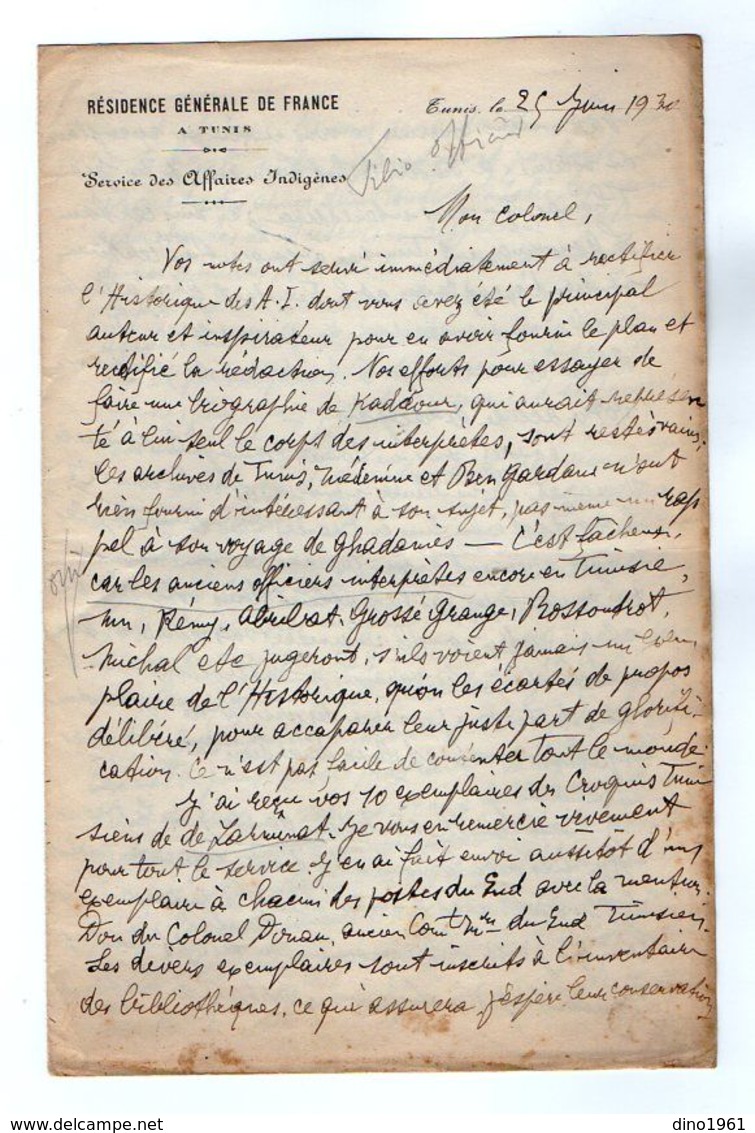 RÉSIDENCE GÉNÉRALE DE FRANCE
A TUNIS
Service des Affaires Indigènes
Tunis, le 25 Juin 1930
Mon Colonel,
Vos notes ont servi immédiatement à rectifier
l'Historique des A.I. dont vous avez été le principal
auteur et inspirateur pour en avoir fourni le plan et
rectifié la rédaction. Nos efforts pour essayer de
faire une biographie de Kaddour, qui aurait représen
té à lui seul le corps des interprètes, sont restés vains;
les archives de Tunis, Médenine et Ben Gardane n'ont
rien fourni d'intéressant à son sujet, pas même un rap
pel à son voyage de Ghadamès — C'est fâcheux,
car les anciens officiers interprètes encore en Tunisie,
MM, Rémy, Abribat, Grossé Grange, Bossoutrot,
Michal etc jugeront, s'ils voient jamais un exem
plaire de l'Historique, qu'on les écartés de propos
délibéré, pour accaparer leur juste part de glorifi-
cation. Ce n'est pas facile de contenter tout le monde.
J'ai reçu vos 10 exemplaires des Croquis Tuni
siens de de Larminat. Je vous en remercie vivement
pour tout le service. J'en ai fait envoi aussitôt d'un
exemplaire à chacun des postes du Sud avec la mention.
Don du Colonel Donau, ancien Comt Mre du Sud Tunisien.
Les divers exemplaires sont inscrits à l'inventaire
des bibliothèques, ce qui assurera, j'espère leur conservation
dino1961